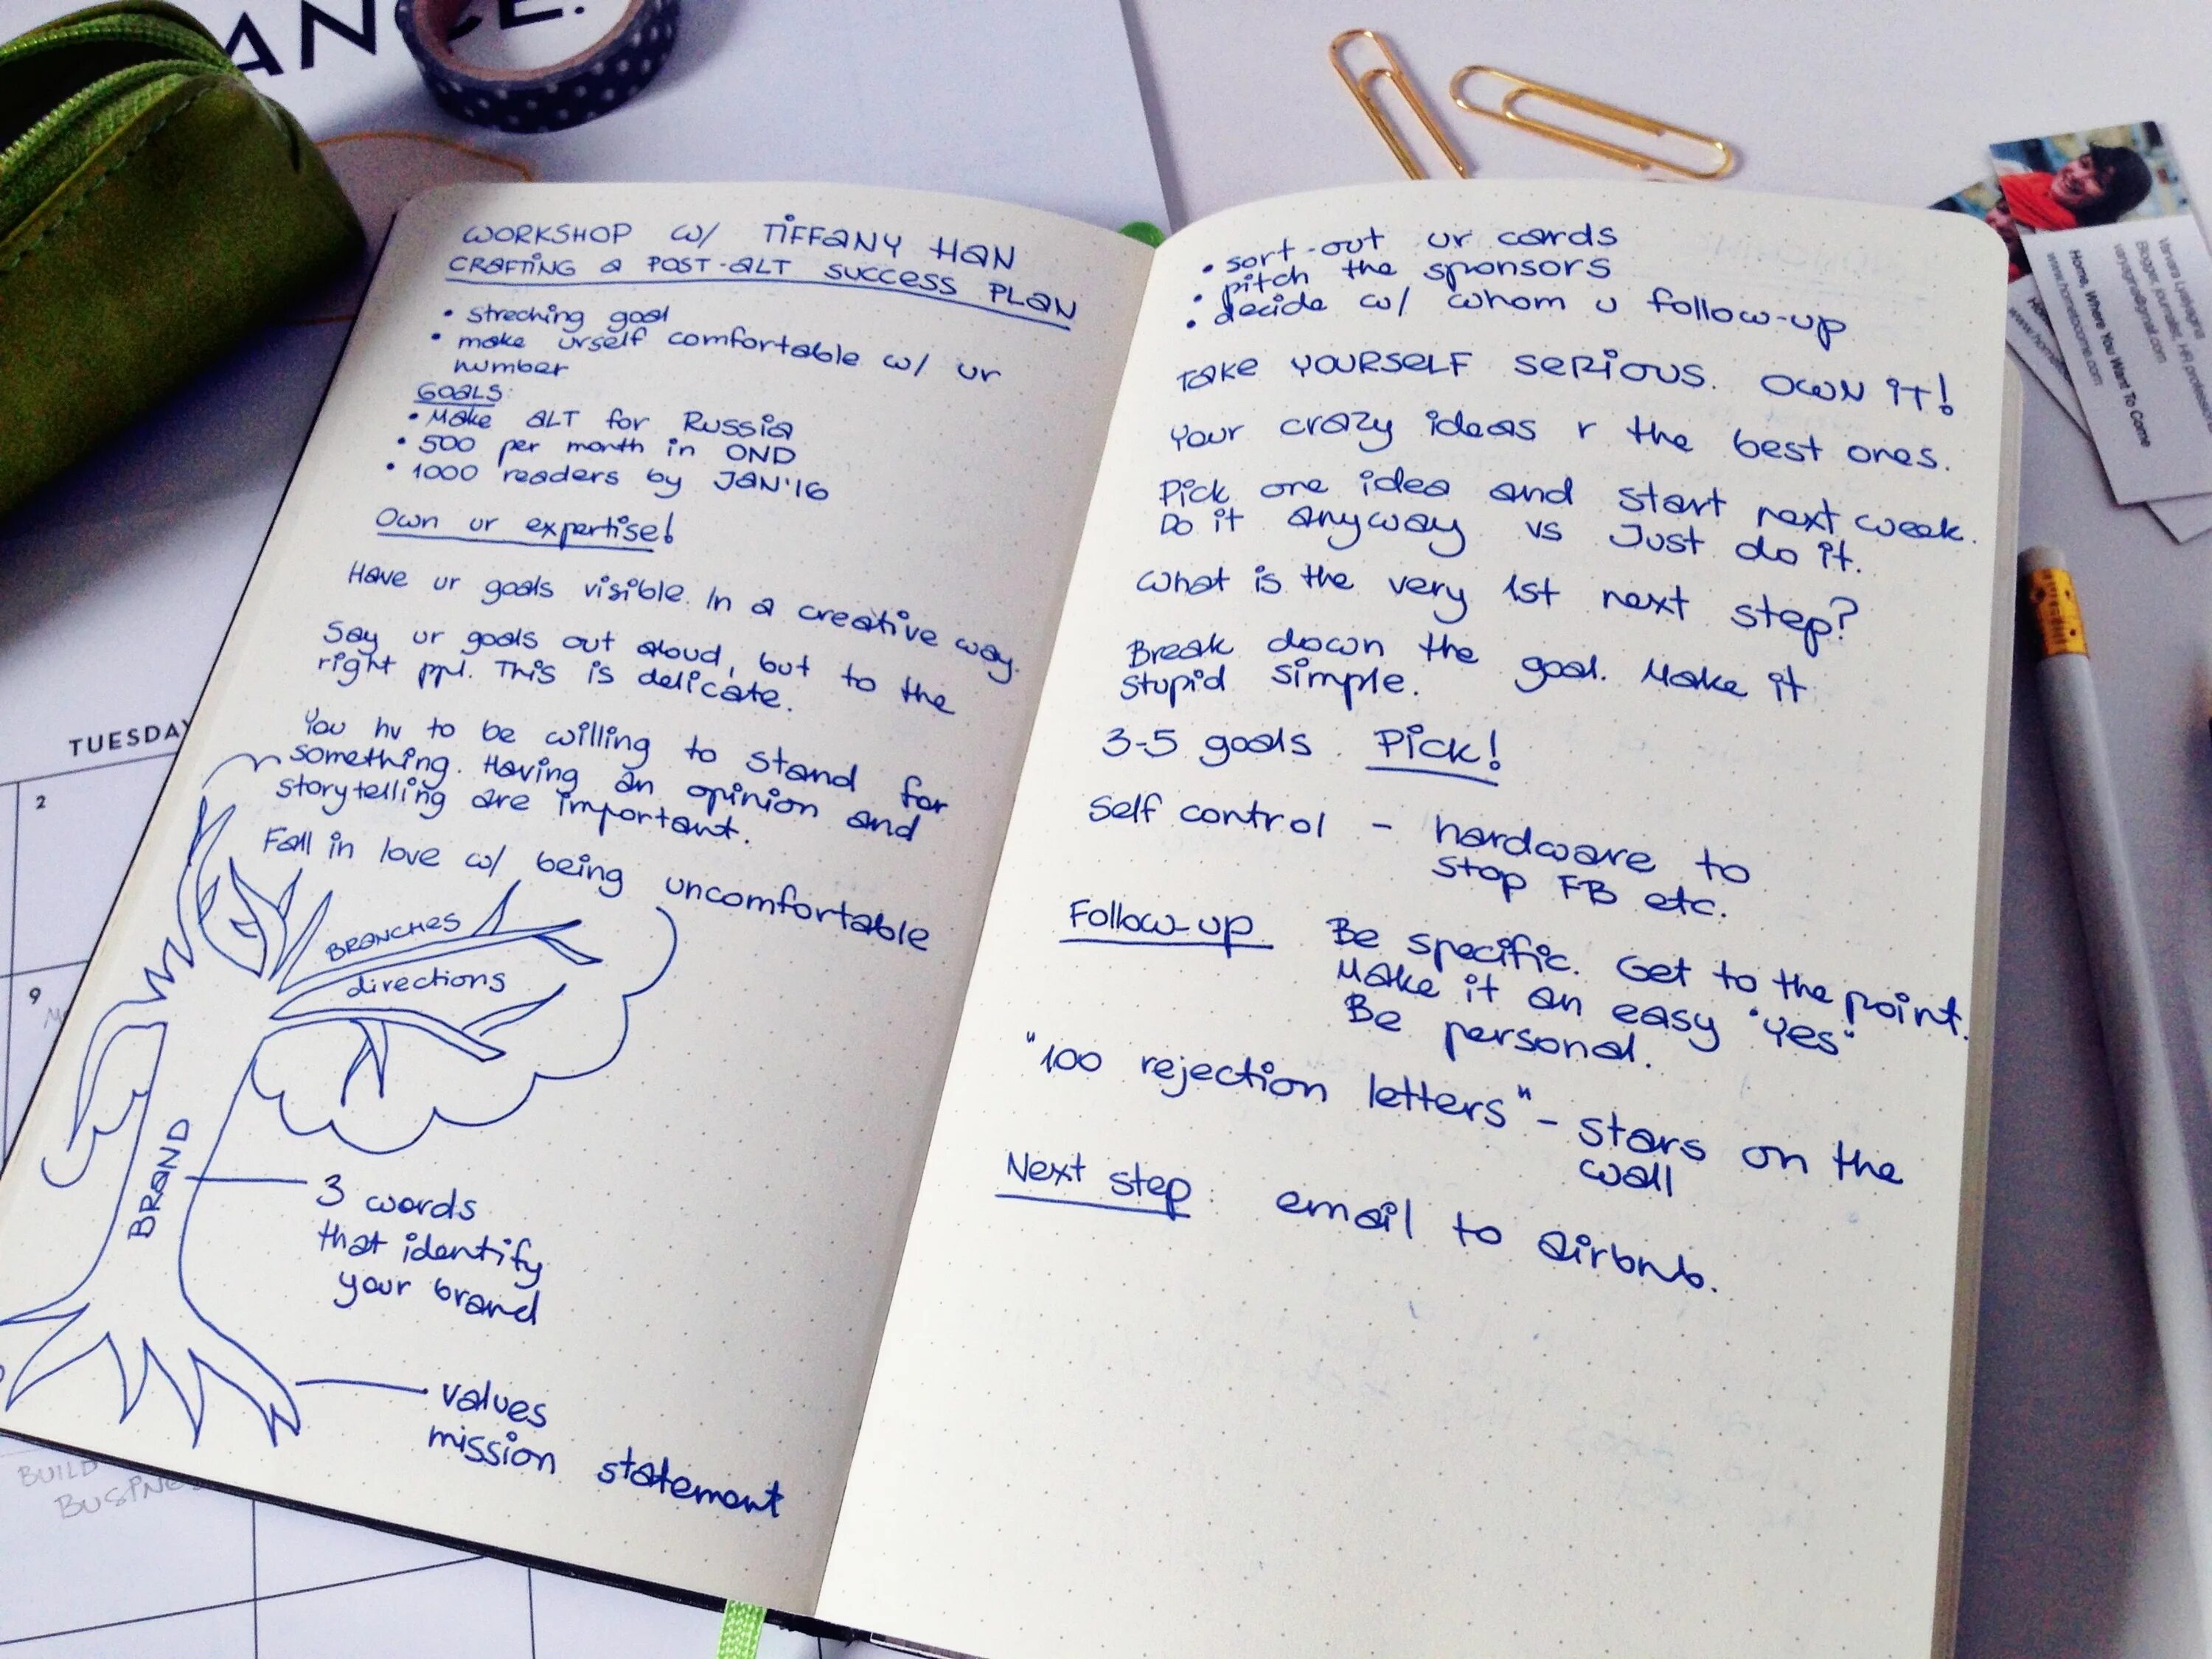 ANCE.
WORKSHOP w/ TIFFANY HAN
CRAFTING a POST-ALT SUCCESS PLAN
• streching goal
• make urself comfortable w/ ur
number
GOALS:
• Make ALT for Russia
• 500 per month in OND
• 1000 readers by JAN'16
Own ur expertise!
Have ur goals visible. In a creative way.
Say ur goals out aloud, but to the
right ppl. This is delicate.
You hv to be willing to stand for
something. Having an opinion and
storytelling are important.
Fall in love w/ being uncomfortable
BRANCHES
directions
BRAND
3 words
that identify
your brand
values
mission statement
• sort-out ur cards
• pitch the sponsors
• decide w/ whom u follow-up
TAKE YOURSELF SERIOUS. OWN IT!
Your crazy ideas r the best ones.
Pick one idea and start next week.
Do it anyway vs Just do it.
What is the very 1st next step?
Break down the goal. Make it
stupid simple.
3-5 goals. Pick!
Self control - hardware to
stop FB etc.
Follow-up Be specific. Get to the point.
Make it an easy "yes"
Be personal.
"100 rejection letters" - stars on the
wall
Next step: email to airbnb.
TUESDAY
2
9
BUILD
Home, Where You Want To Come
www.hometocome.com